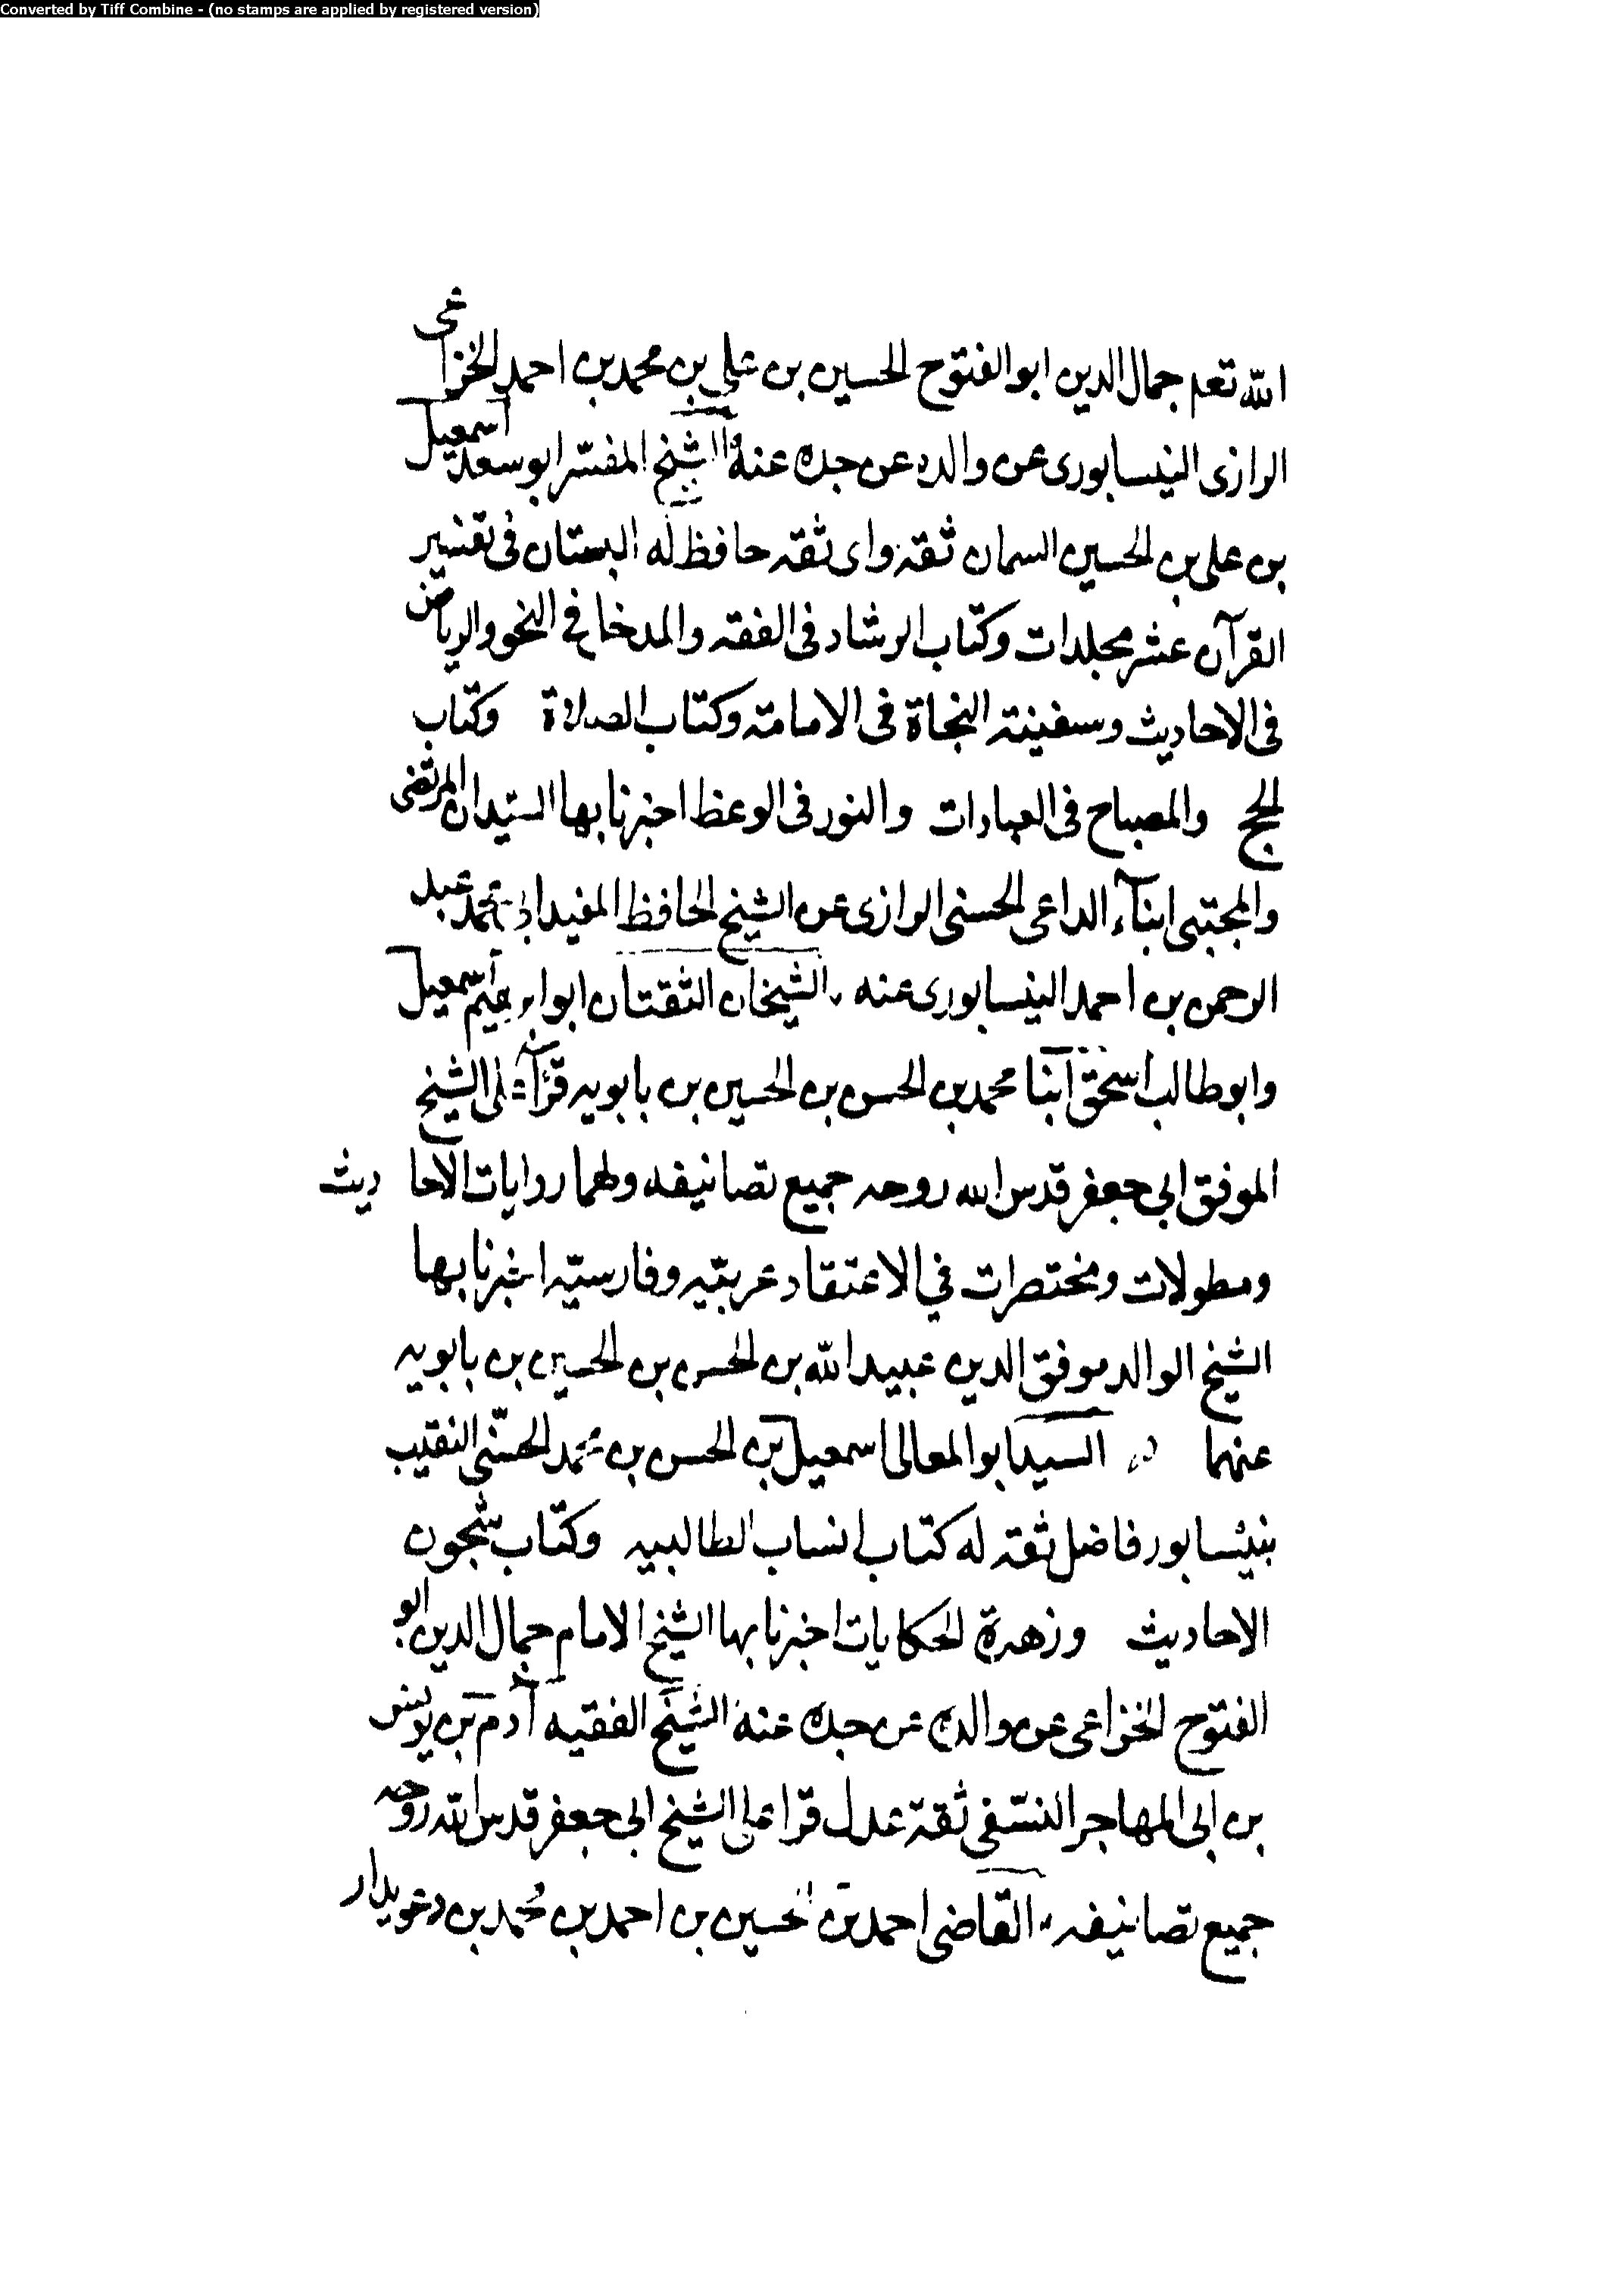 Converted by Tiff Combine - (no stamps are applied by registered version)
الله تعلم جمال الدين ابو الفتوح الحسين بن على بن محمد بن احمد الخزاعى
الرازى النيسابورى عن والده عن جده عنه الشيخ المفسّر ابو سعد اسمعيل
بن على بن الحسين السمان ثقة واى ثقه حافظ له البستان فى تفسير
القرآن عشر مجلدات وكتاب الرشاد فى الفقه والمدخل فى النحو والرياض
فى الاحاديث وسفينة النجاة فى الامامة وكتاب الصلاة وكتاب
الحج والمصباح فى العبادات والنور فى الوعظ اخبرنا بها السيّدان المرتضى
والمجتبى ابنآء الداعى الحسنى الرازى عن الشيخ الحافظ المفيد ابى محمد عبد
الرحمن بن احمد النيسابورى عنه الشيخان الثقتان ابو ابرهيم اسمعيل
وابو طالب اسحق ابنا محمد بن الحسن بن الحسين بن بابويه قرآ على الشيخ
الموفق ابى جعفر قدس الله روحه جميع تصانيفه ولهما روايات الاحاديث
ومطولات ومختصرات في الاعتقاد عربيّه وفارسيّه اخبرنا بها
الشيخ الوالد موفق الدين عبيد الله بن الحسن بن الحسين بن بابويه
عنهما السيد ابو المعالى اسمعيل بن الحسن بن محمد الحسنّى النقيب
بنيسابور فاضل ثقة له كتاب انساب الطالبيه وكتاب شجون
الاحاديث وزهرة الحكايات اخبرنا بها الشيخ الامام جمال الدين ابو
الفتوح الخزاعى عن والده عن جده عنه الشيخ الفقيه آدم بن يونس
بن ابى المهاجر النسّفى ثقة عدل قرا على الشيخ ابى جعفر قدس الله روحه
جميع تصانيفه القاضى احمد بن الحسين بن احمد بن محمد بن دعويدار